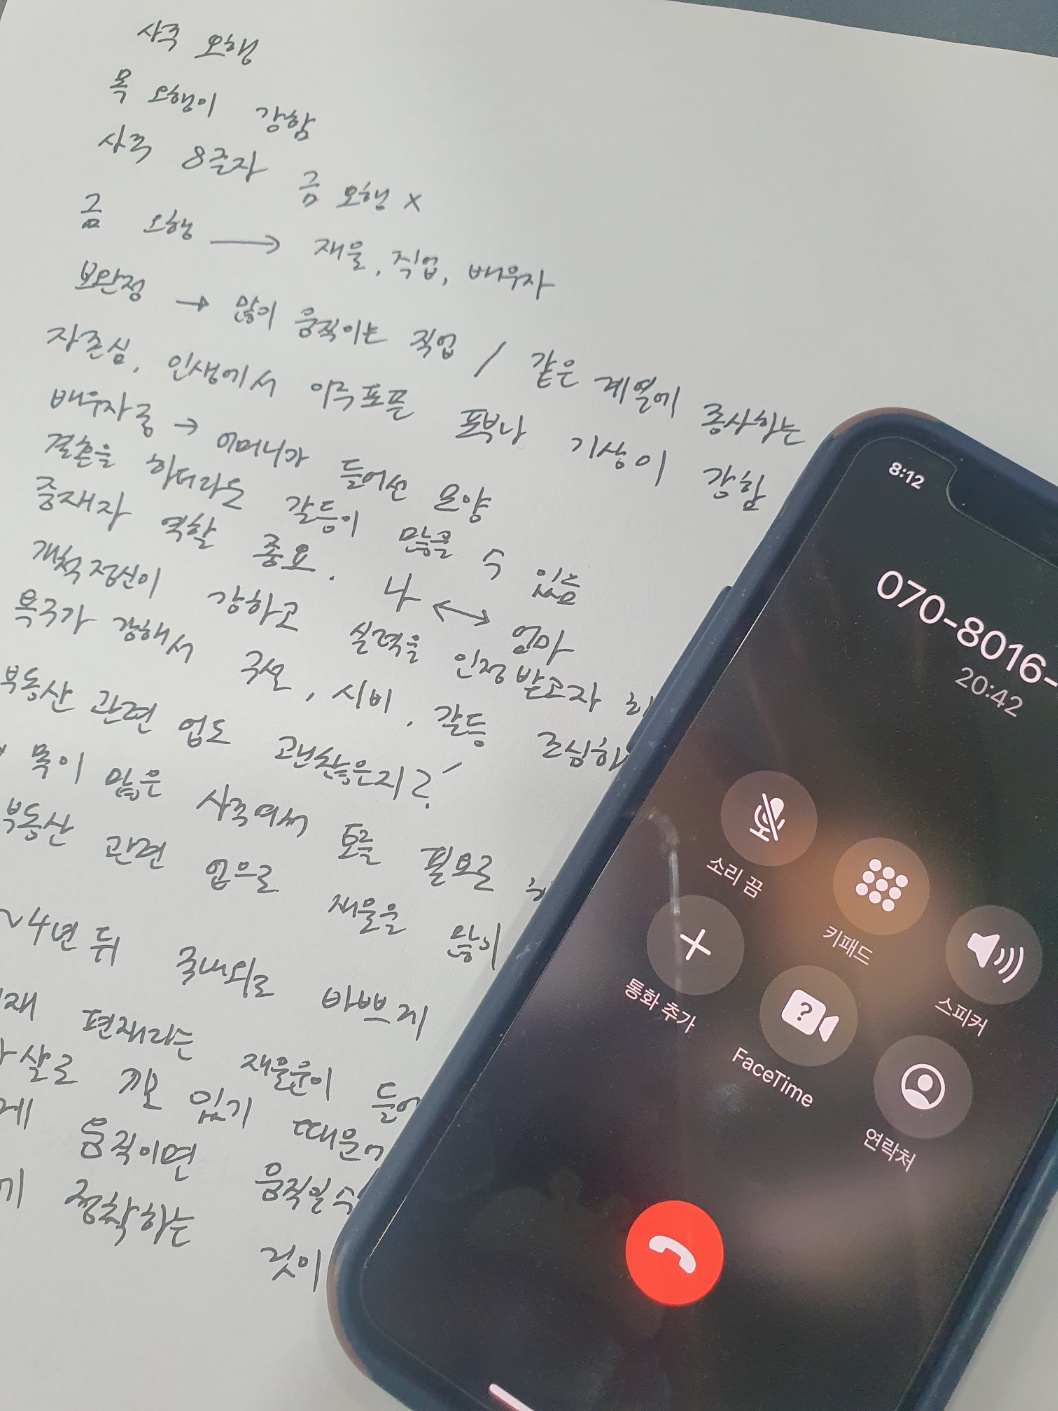 사주 오행
목 오행이 강함
사주 8글자 금 오행 x
금 오행 → 재물, 직업, 배우자
보완점 → 많이 움직이는 직업 / 같은 계열에 종사하는
자존심, 인생에서 이루고픈 포부나 기상이 강함
배우자궁 → 어머니가 들어선 모양
결혼을 하더라도 갈등이 많을 수 있음
중재자 역할 중요. 나 ↔ 엄마
개척정신이 강하고 실력을 인정받고자 하
목국가 강해서 구설, 시비, 갈등 조심하
부동산 관련 업도 괜찮은지?
목이 많은 사주여서 토를 필요로 하
부동산 관련 업으로 재물을 많이
~4년 뒤 국내외로 바쁘게
재 편재라는 재물운이 들어
살로 끼고 있기 때문에
게 움직이면 움직일수
정착하는 것이
8:12
070-8016-
20:42
소리 끔
키패드
스피커
통화 추가
FaceTime
연락처